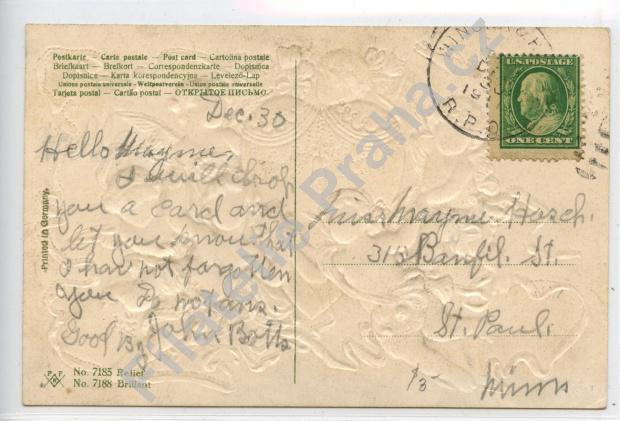 Postkarte — Carte postale — Post card — Cartolina postale
Briefkaart — Brefkort — Correspondenzkarte — Dopisnica
Dopisnice — Karta korespondencyjna — Levelező-Lap
Unions postale universale — Weltpostverein — Union postale universelle
Tarjeta postal — Cartão postal — ОТКРЫТОЕ ПИСЬМО
Dec. 30
Hello Mayme,
I will drop
you a card and
let you know that
I have not forgotten
you Do not ans.
Good By John Botts
Printed in Germany.
PFB
No. 7185 Relief
No. 7188 Brillant
R.P.O
U.S. POSTAGE
ONE CENT
Miss Mayme Hosch.
315 Banfil. St.
St. Paul.
Minn
$3-
Filatelie Praha.cz